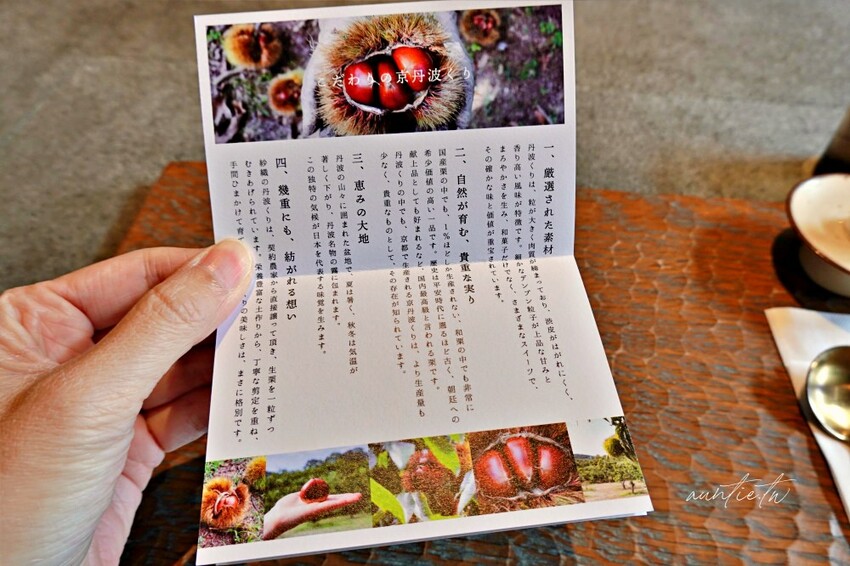 こだわりの京丹波くり
一、厳選された素材
丹波くりは、粒が大きく肉質が締まっており、渋皮がはがれにくく、
香り高い風味が特徴です。細かなデンプン粒子が上品な甘みと
まろやかさを生み、和菓子だけでなく、さまざまなスイーツで、
その確かな味と価値が重宝されています。
二、自然が育む、貴重な実り
国産栗の中でも、1%ほどしか生産されない、和栗の中でも非常に
希少価値の高い一品です。歴史は平安時代に遡るほど古く、朝廷への
献上品としても好まれるなど、国内最高級と言われる栗です。
丹波くりの中でも、京都で生産される京丹波くりは、より生産量も
少なく、貴重なものとして、その存在が知られています。
三、恵みの大地
丹波の山々に囲まれた盆地で、夏は暑く、秋冬は気温が
著しく下がり、丹波名物の霧に包まれます。
この独特の気候が日本を代表する味覚を生みます。
四、幾重にも、紡がれる想い
紗織の丹波くりは、契約農家から直接譲って頂き、生栗を一粒ずつ
むきあげられています。栄養豊富な土作りから、丁寧な剪定を重ね、
手間ひまかけて育て りの美味しさは、まさに格別です。
auntie.tw